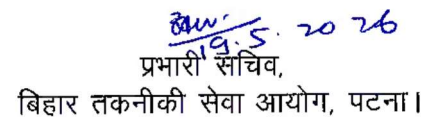 19.5.2026
प्रभारी सचिव,
बिहार तकनीकी सेवा आयोग, पटना।